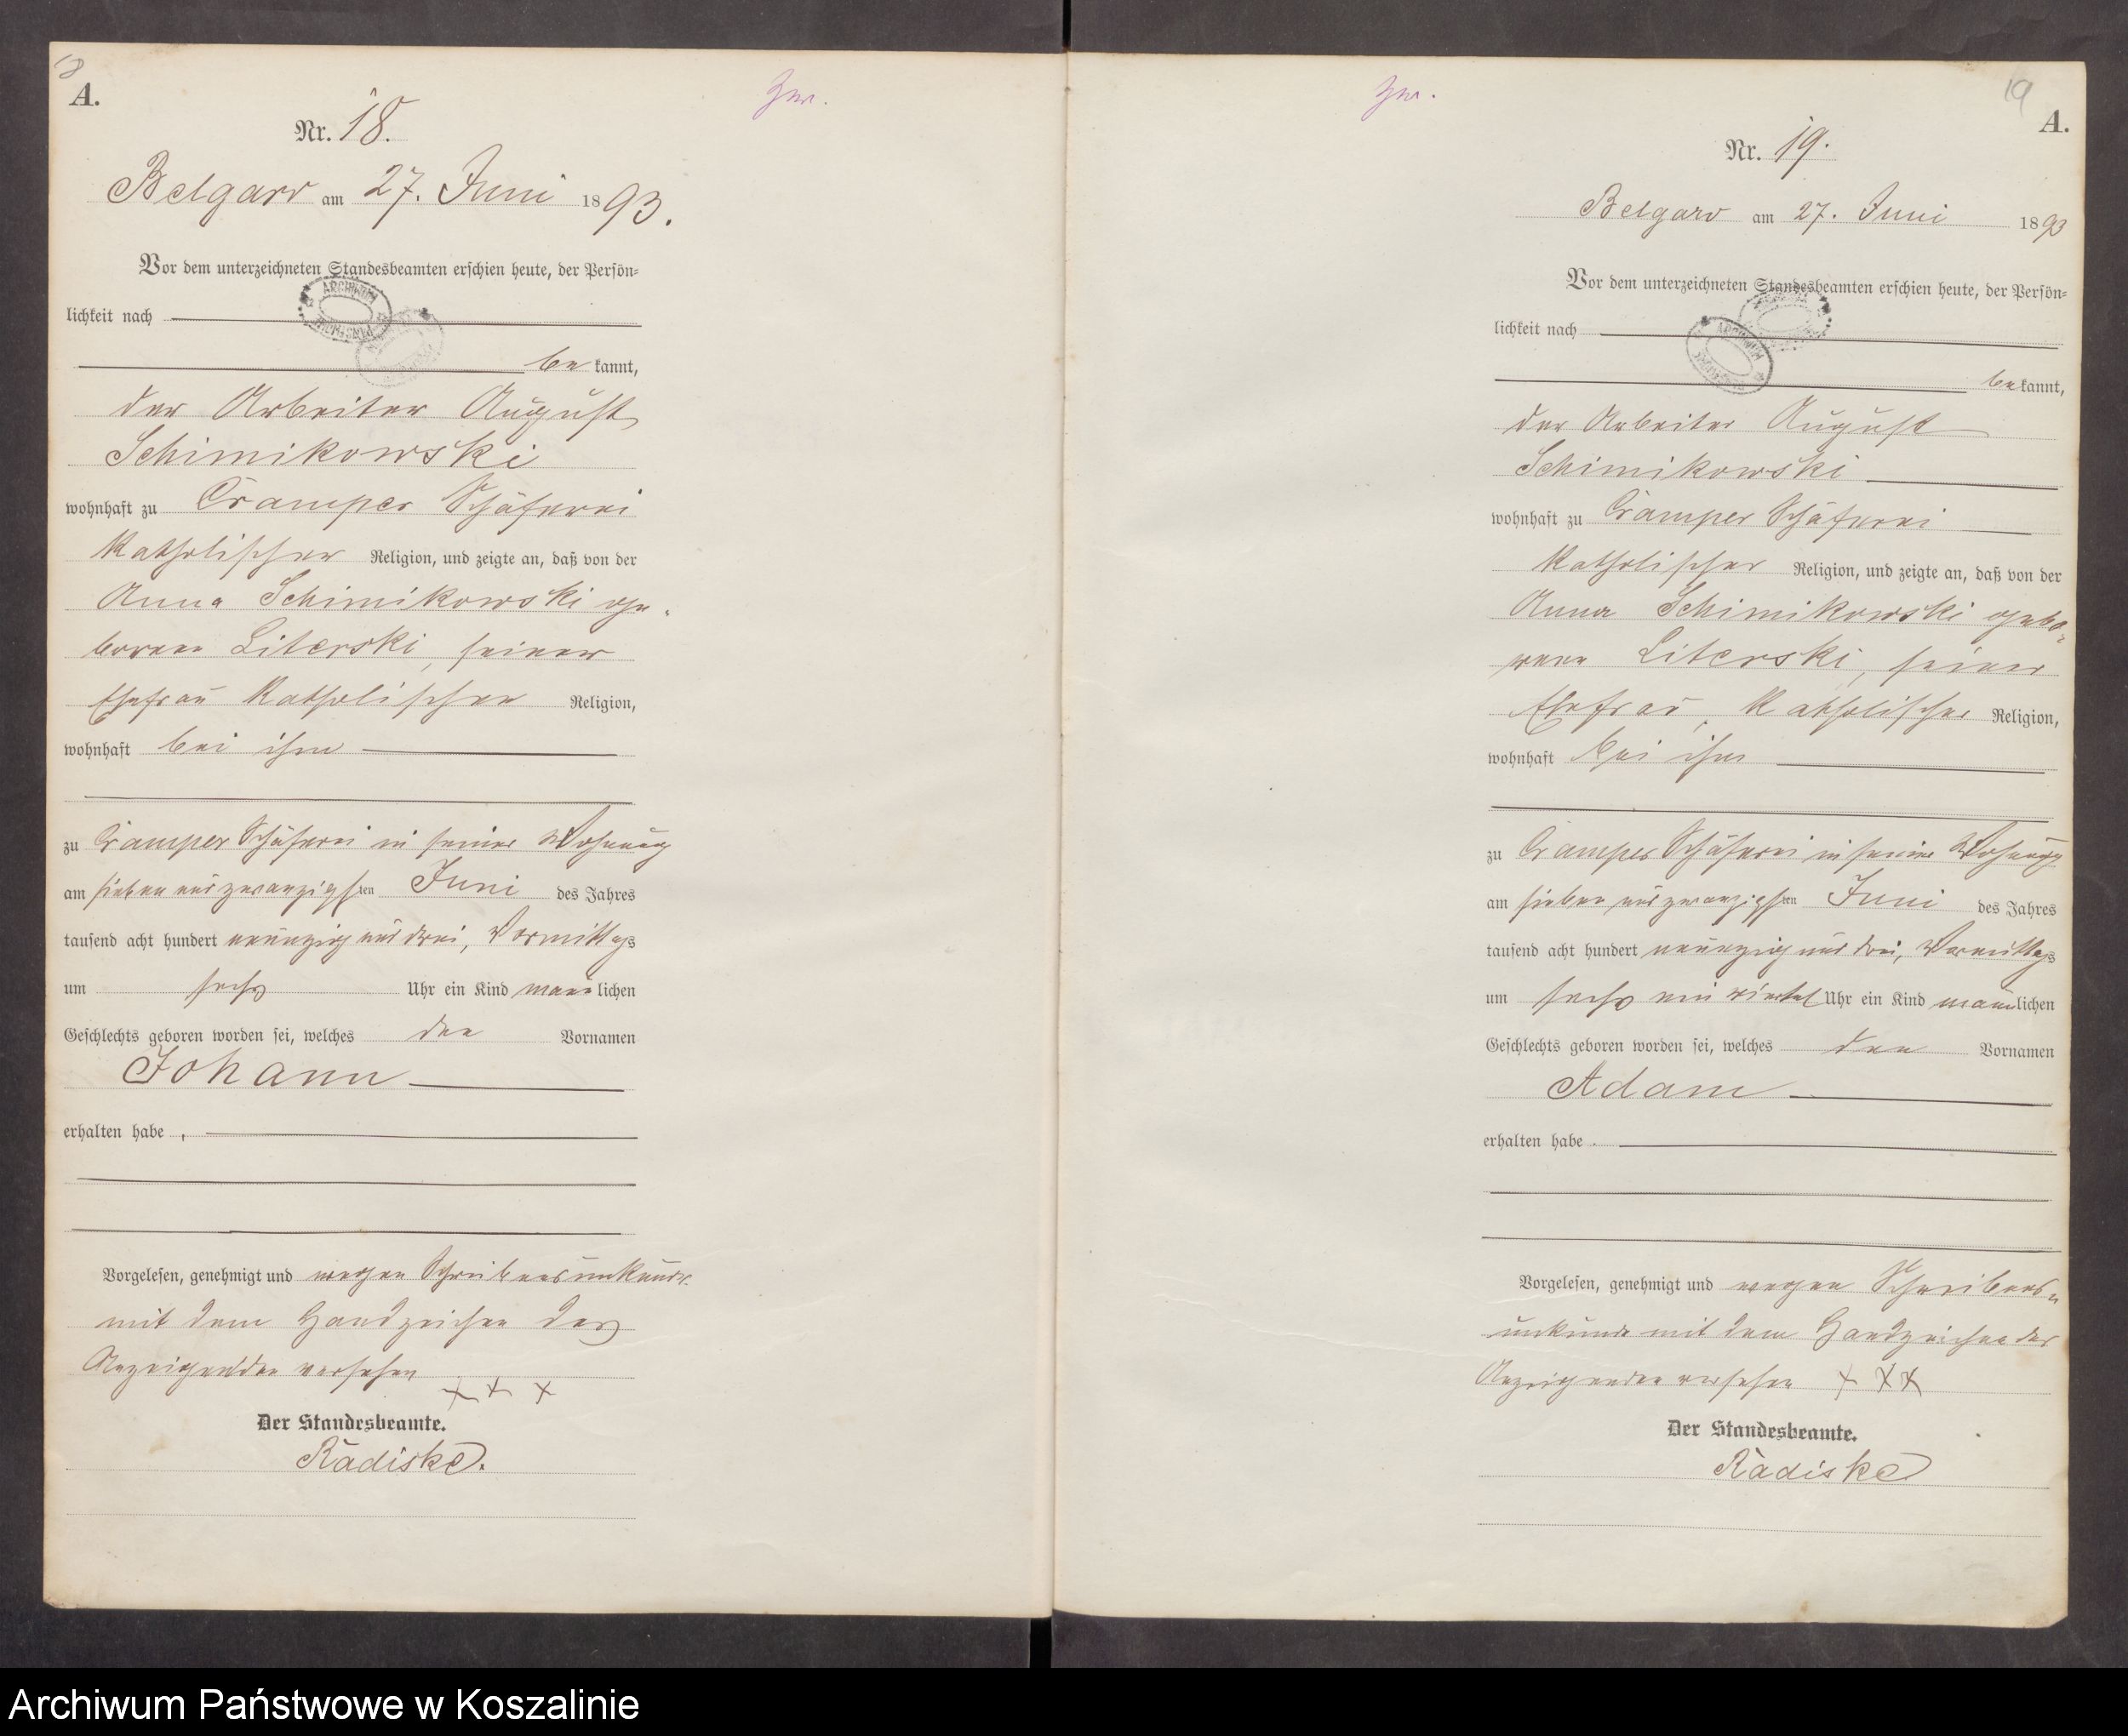 18
A.
Nr. 18.
Zw.
Belgard am 27. Juni 1893.
Vor dem unterzeichneten Standesbeamten erschien heute, der Persön-
lichkeit nach
bekannt,
der Arbeiter August
Schimikowski
wohnhaft zu Cramper Schäferei
katholischer Religion, und zeigte an, daß von der
Anna Schimikowski ge-
borene Literski, seiner
Ehefrau katholischer Religion,
wohnhaft bei ihm
zu Cramper Schäferei in seiner Wohnung
am sieben und zwanzigsten Juni des Jahres
tausend acht hundert neunzig und drei, Vormittags
um sechs Uhr ein Kind männlichen
Geschlechts geboren worden sei, welches den Vornamen
Johann
erhalten habe,
Vorgelesen, genehmigt und wegen Schreibensunkunde
mit dem Handzeichen des
Anzeigenden versehen
+ + +
Der Standesbeamte.
Radiske.
Zw.
19
A.
Nr. 19.
Belgard am 27. Juni 1893
Vor dem unterzeichneten Standesbeamten erschien heute, der Persön-
lichkeit nach
bekannt,
der Arbeiter August
Schimikowski
wohnhaft zu Cramper Schäferei
katholischer Religion, und zeigte an, daß von der
Anna Schimikowski gebo-
rene Literski, seiner
Ehefrau, katholischer Religion,
wohnhaft bei ihm
zu Cramper Schäferei in seiner Wohnung
am sieben und zwanzigsten Juni des Jahres
tausend acht hundert neunzig und drei, Vormittags
um sechs ein viertel Uhr ein Kind männlichen
Geschlechts geboren worden sei, welches den Vornamen
Adam
erhalten habe.
Vorgelesen, genehmigt und wegen Schreibens-
unkunde mit dem Handzeichen des
Anzeigenden versehen + + +
Der Standesbeamte.
Radiske
Archiwum Państwowe w Koszalinie